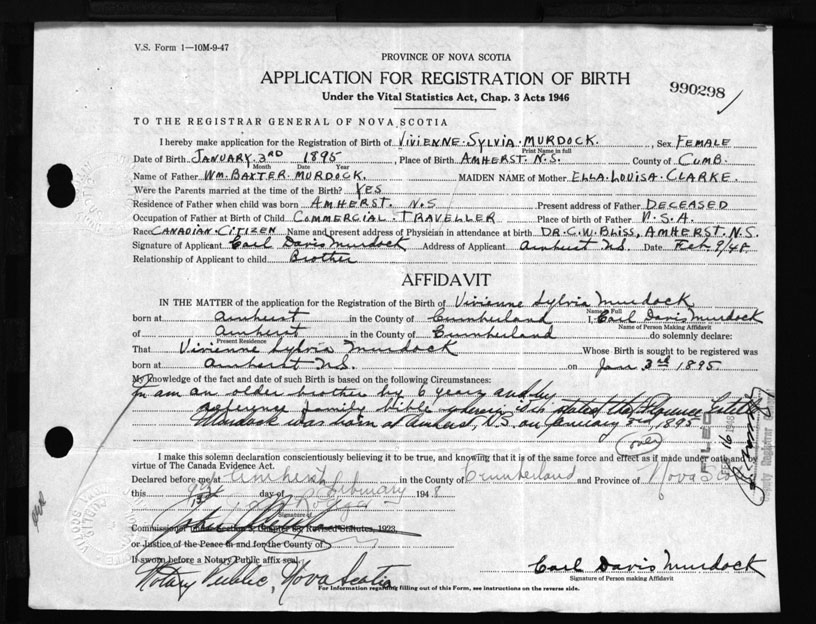 V.S. Form 1—10M-9-47
PROVINCE OF NOVA SCOTIA
APPLICATION FOR REGISTRATION OF BIRTH
990298
Under the Vital Statistics Act, Chap. 3 Acts 1946
TO THE REGISTRAR GENERAL OF NOVA SCOTIA
I hereby make application for the Registration of Birth of VIVIENNE SYLVIA MURDOCK, Sex FEMALE
Print Name in full
Date of Birth JANUARY 3RD 1895, Place of Birth AMHERST. N.S. County of CUMB.
Month Date Year
Name of Father WM. BAXTER MURDOCK. MAIDEN NAME of Mother ELLA LOUISA CLARKE.
Were the Parents married at the time of the Birth? YES
Residence of Father when child was born AMHERST. N.S Present address of Father DECEASED
Occupation of Father at Birth of Child COMMERCIAL TRAVELLER Place of birth of Father N.S.A.
Race CANADIAN CITIZEN Name and present address of Physician in attendance at birth DR. C. W. BLISS, AMHERST. N.S.
Signature of Applicant Carl Davis Murdock Address of Applicant Amherst N.S. Date Feb. 9/48.
Relationship of Applicant to child Brother
AFFIDAVIT
IN THE MATTER of the application for the Registration of the Birth of Vivienne Sylvia Murdock
Name in Full
born at Amherst in the County of Cumberland I, Carl Davis Murdock
Name of Person Making Affidavit
of Amherst in the County of Cumberland do solemnly declare:
Present Residence
That Vivienne Sylvia Murdock Whose Birth is sought to be registered was
born at Amherst N.S. on Jan 3rd 1895.
My knowledge of the fact and date of such Birth is based on the following Circumstances:
I am an older brother by 6 years and by
reference family bible wherein it is stated that
Murdock was born at Amherst, N.S. on January 3rd, 1895
(over)
FILED
FEB 16 1948
I make this solemn declaration conscientiously believing it to be true, and knowing that it is of the same force and effect as if made under oath and by
virtue of The Canada Evidence Act.
Declared before me at Amherst in the County of Cumberland and Province of Nova Scotia
this day of February 1948
Signature of
Commissioner under Section 3, Chapter 63, Revised Statutes, 1923.
or Justice of the Peace in and for the County of
If sworn before a Notary Public affix seal.
Notary Public, Nova Scotia
Carl Davis Murdock
Signature of Person making Affidavit
For Information regarding filling out of this Form, see instructions on the reverse side.